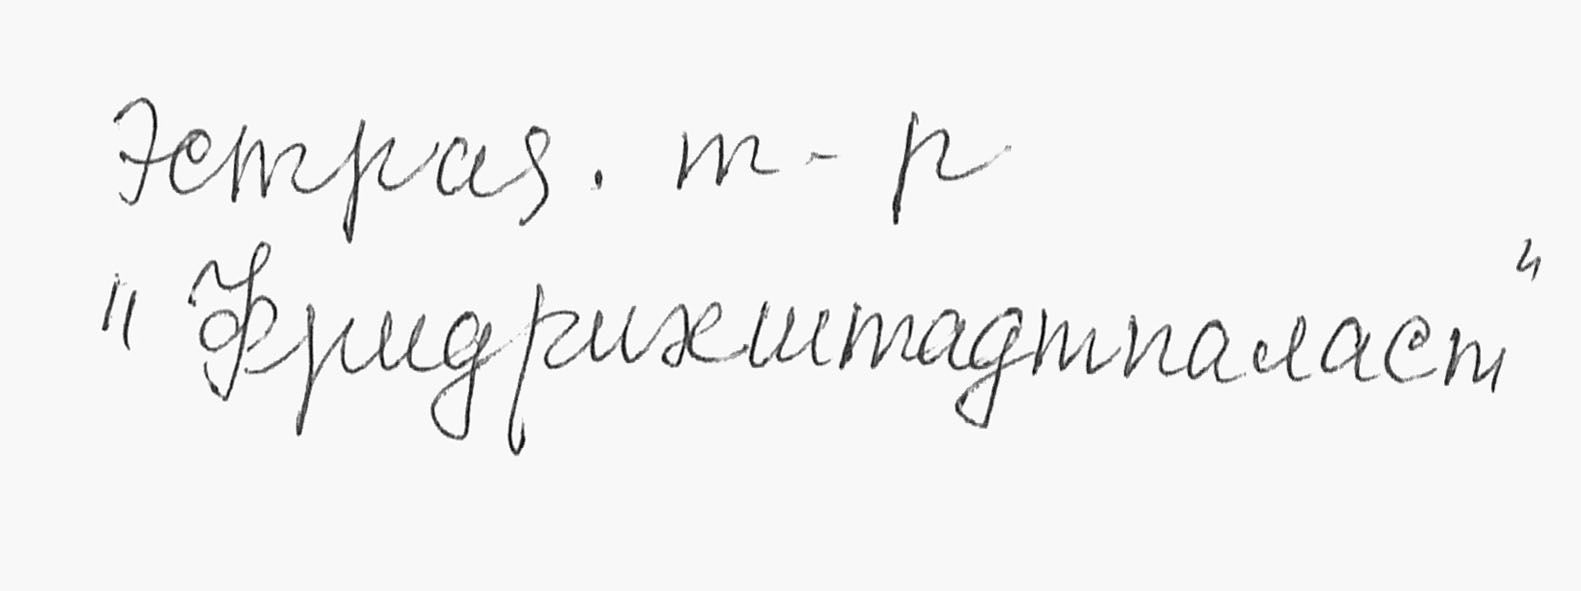 Эстрад. т-р
"Фридрихштадтпаласт"